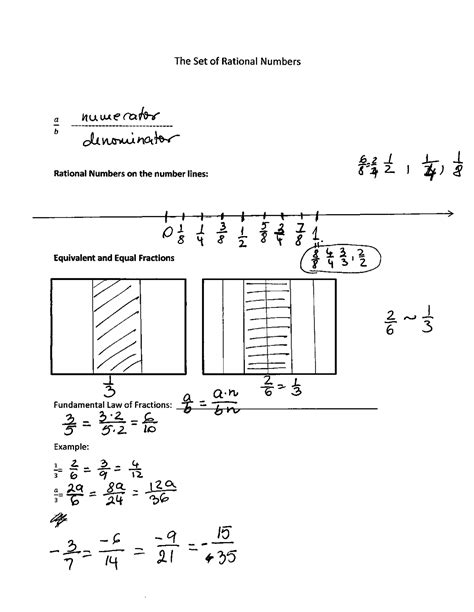 The Set of Rational Numbers
a/b numerator/denominator
6/8 = 3/4 1/2, 1/4, 1/8
Rational Numbers on the number lines:
0 1/8 1/4 3/8 1/2 5/8 3/4 7/8 1
8/8 4/4 3/3, 2/2
Equivalent and Equal Fractions
2/6 ~ 1/3
1/3 2/6 = 1/3
Fundamental Law of Fractions: a/b = a·n/bn
3/5 = 3·2/5·2 = 6/10
Example:
1/3 = 2/6 = 3/9 = 4/12
a/3 = 2a/6 = 8a/24 = 12a/36
-3/7 = -6/14 = -9/21 = -15/35